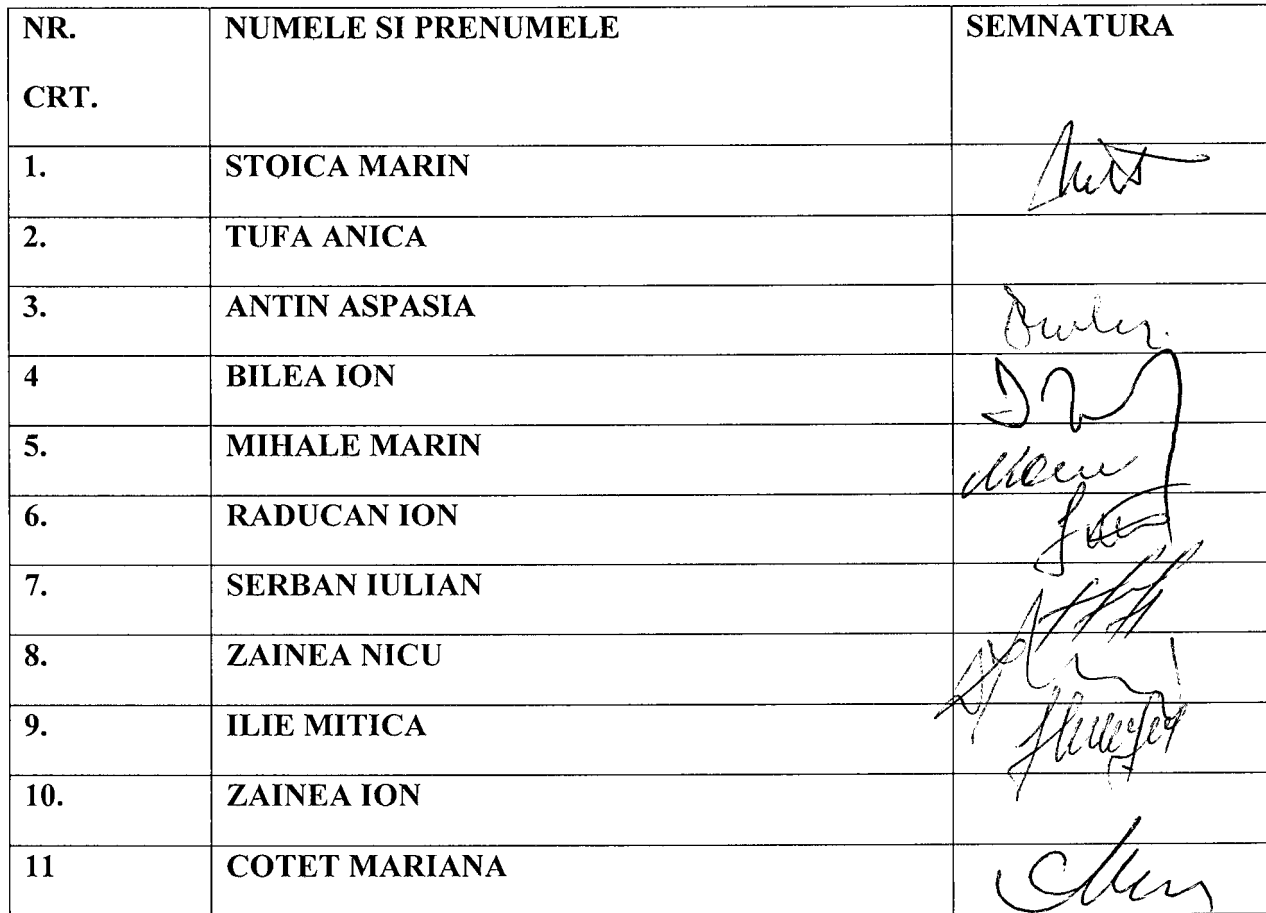 NR. NUMELE SI PRENUMELE SEMNATURA
CRT.
1. STOICA MARIN
2. TUFA ANICA
3. ANTIN ASPASIA
4 BILEA ION
5. MIHALE MARIN
6. RADUCAN ION
7. SERBAN IULIAN
8. ZAINEA NICU
9. ILIE MITICA
10. ZAINEA ION
11 COTET MARIANA